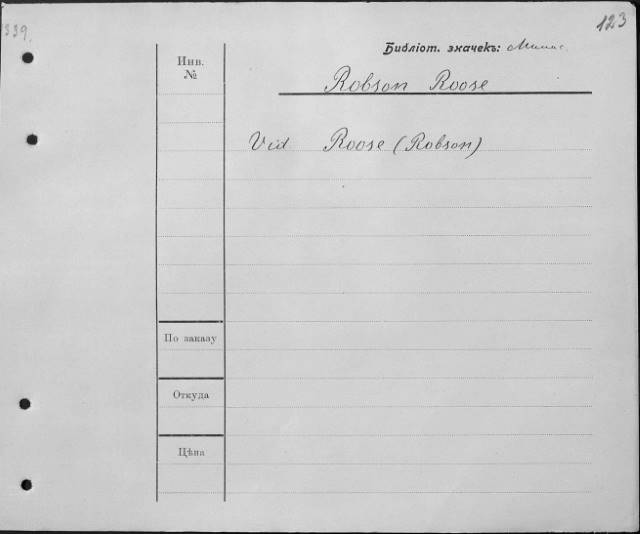 339.
123
Библіот. значекъ:
Инв.
№
Robson Roose
Vid Roose (Robson)
По заказу
Откуда
Цѣна